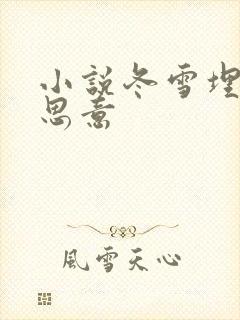 小說冬雪埋
思意
風雪天心